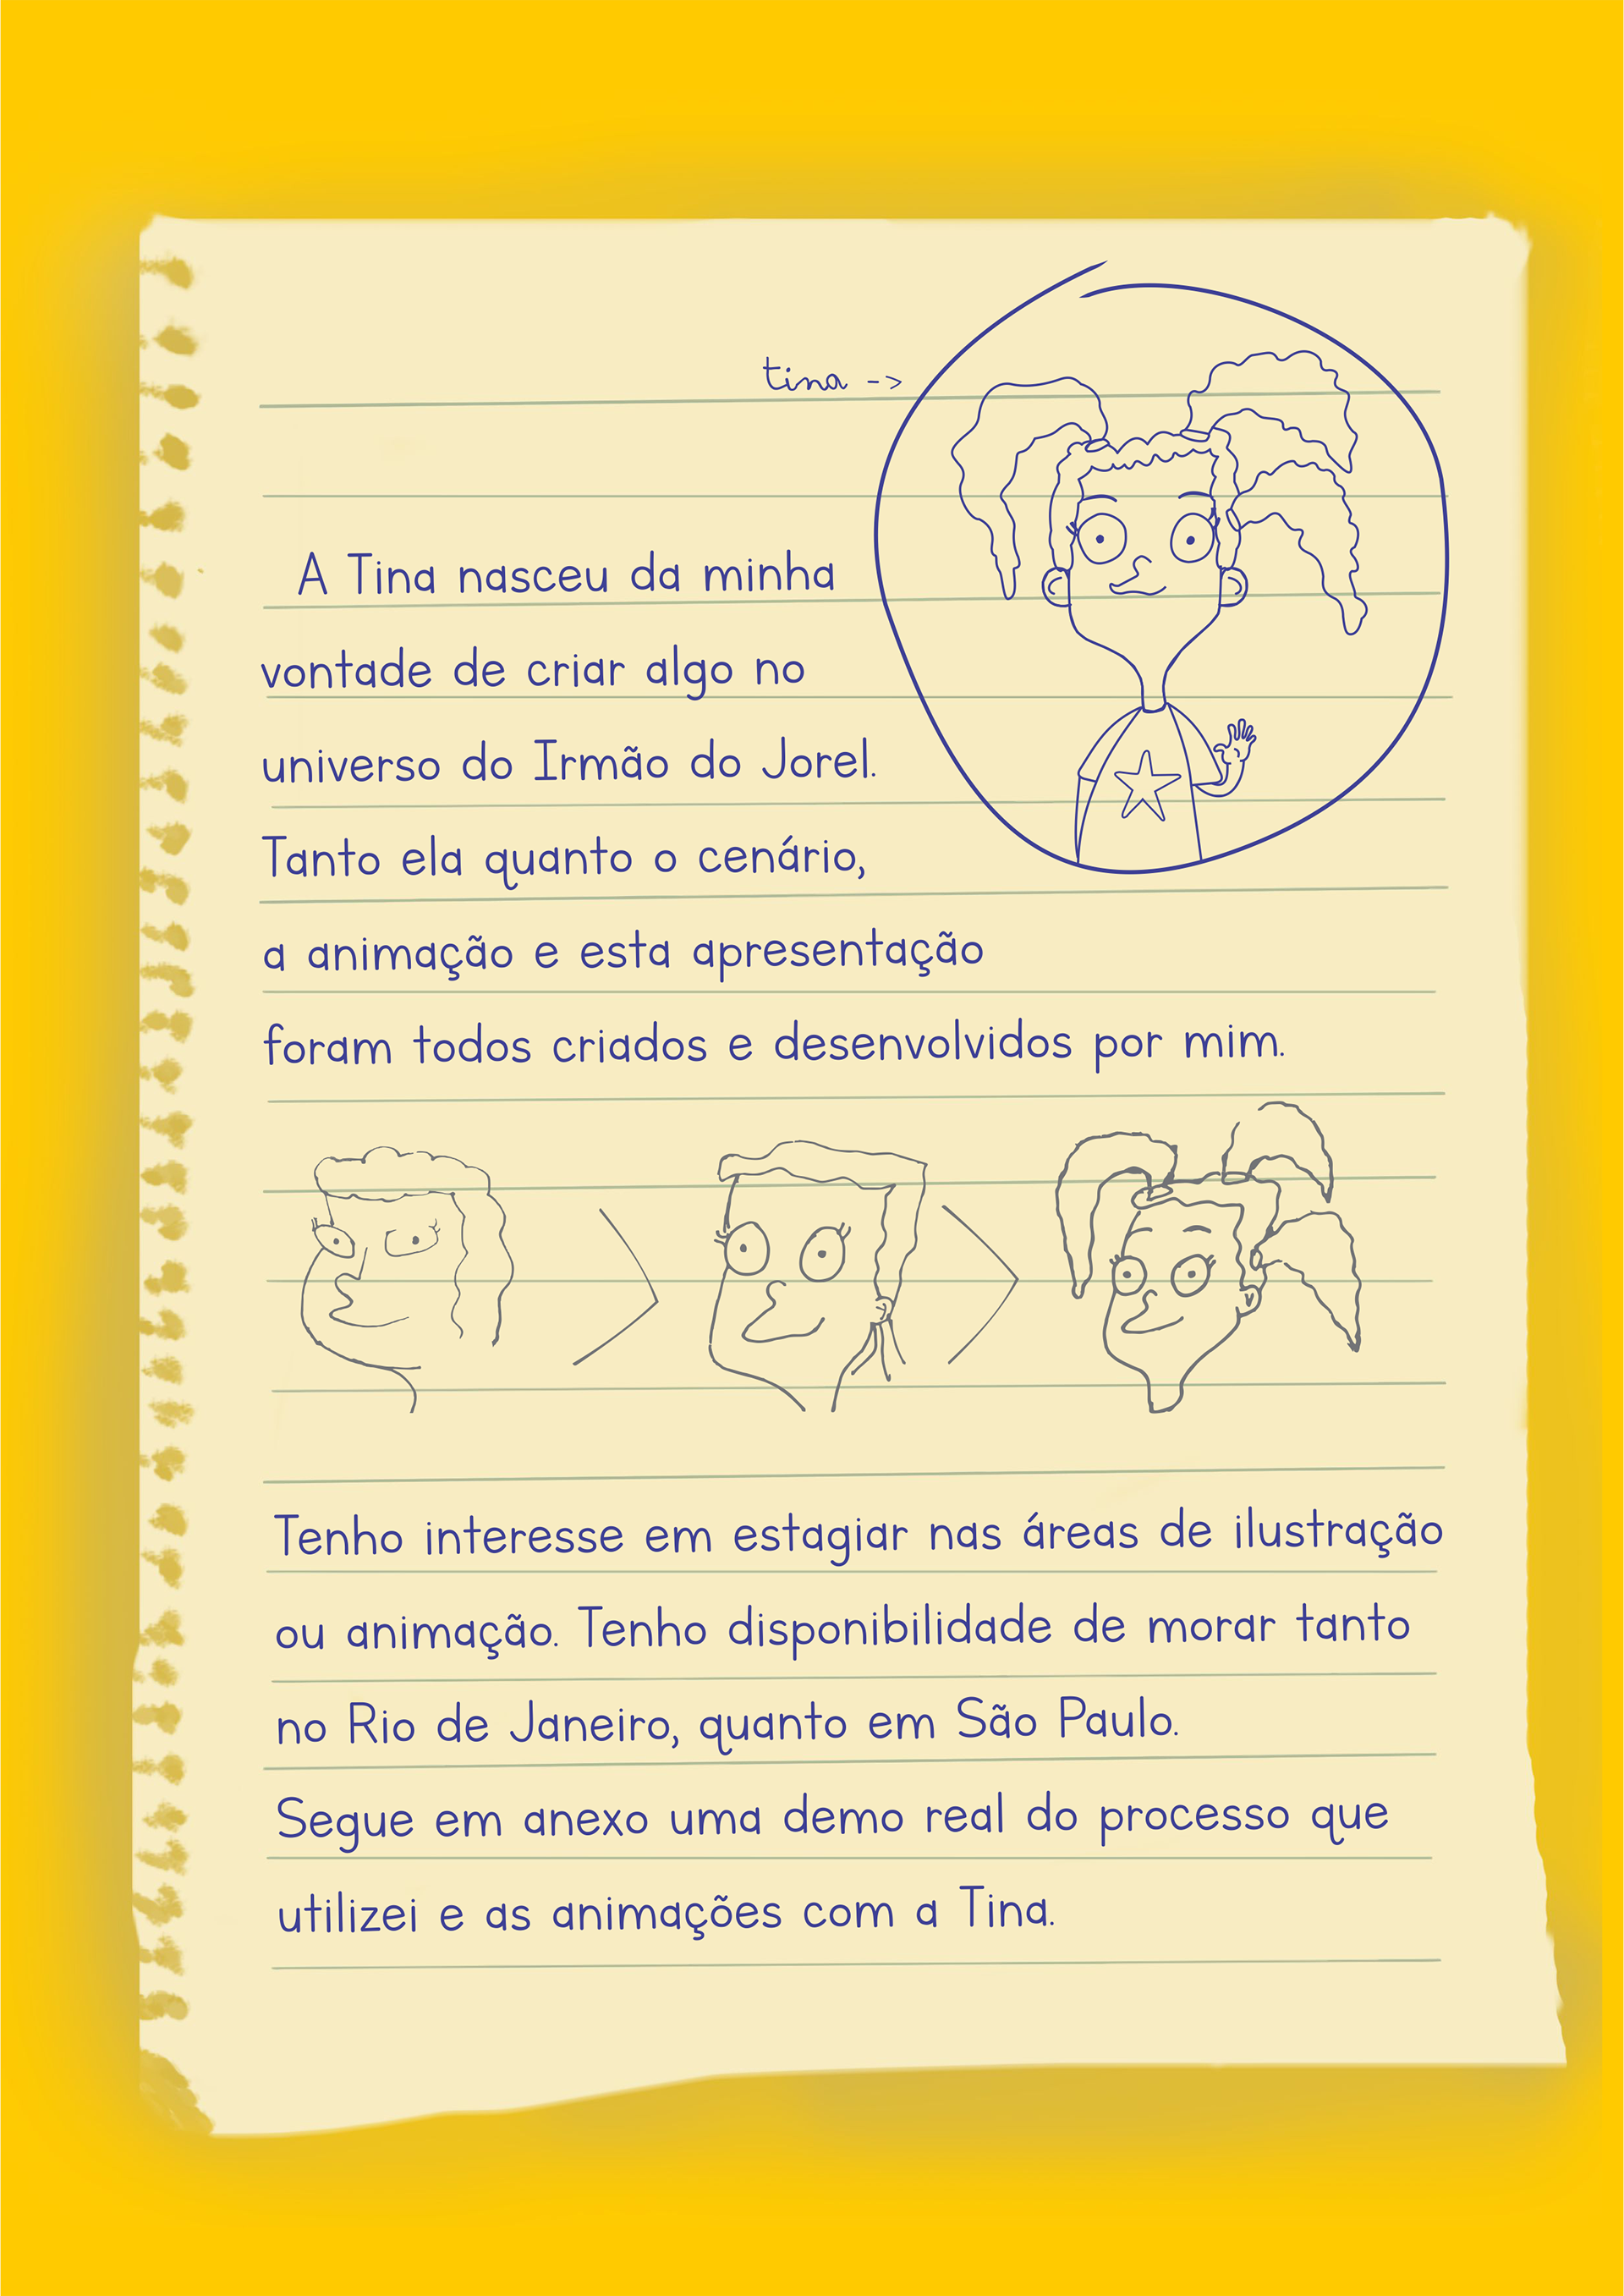 tina ->
A Tina nasceu da minha
vontade de criar algo no
universo do Irmão do Jorel.
Tanto ela quanto o cenário,
a animação e esta apresentação
foram todos criados e desenvolvidos por mim.
Tenho interesse em estagiar nas áreas de ilustração
ou animação. Tenho disponibilidade de morar tanto
no Rio de Janeiro, quanto em São Paulo.
Segue em anexo uma demo real do processo que
utilizei e as animações com a Tina.